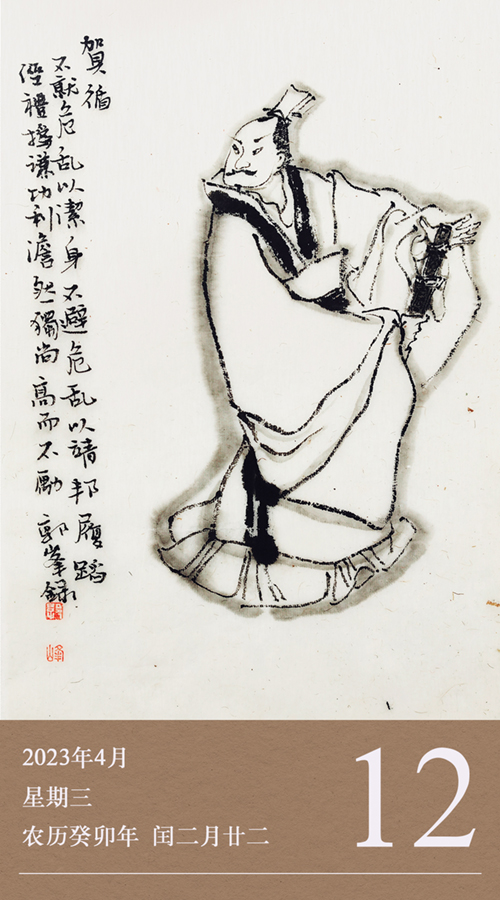 賀循
不就危乱以潔身不避危乱以靖邦履蹈
經禮撝謙功利澹然獨尚高而不勵郭峯録
峰
2023年4月
星期三
农历癸卯年 闰二月廿二
12